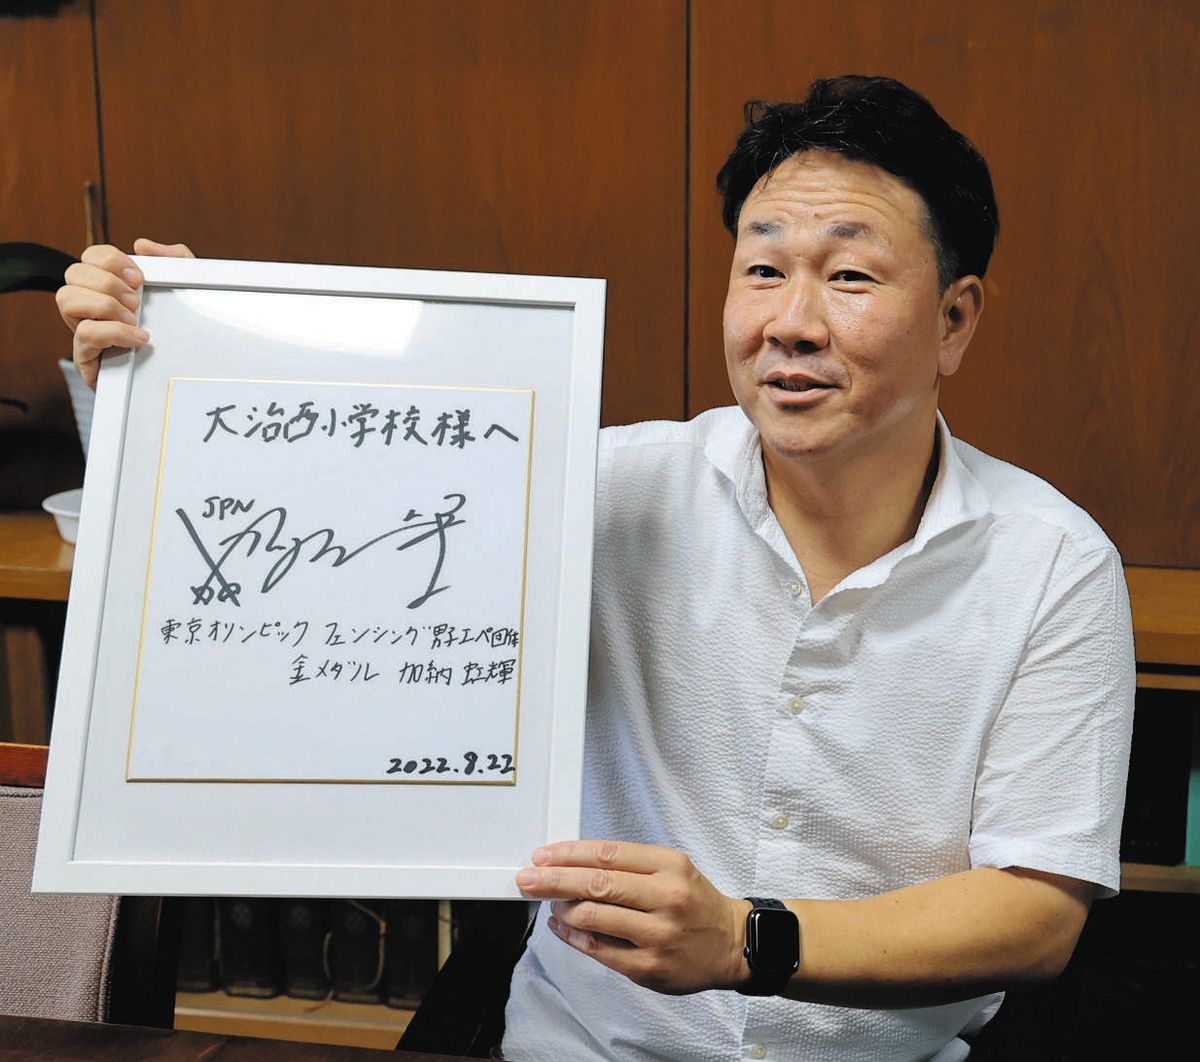 大治西小学校様へ
JPN
東京オリンピック フェンシング男子エペ団体
金メダル 加納 虹輝
2022.8.22